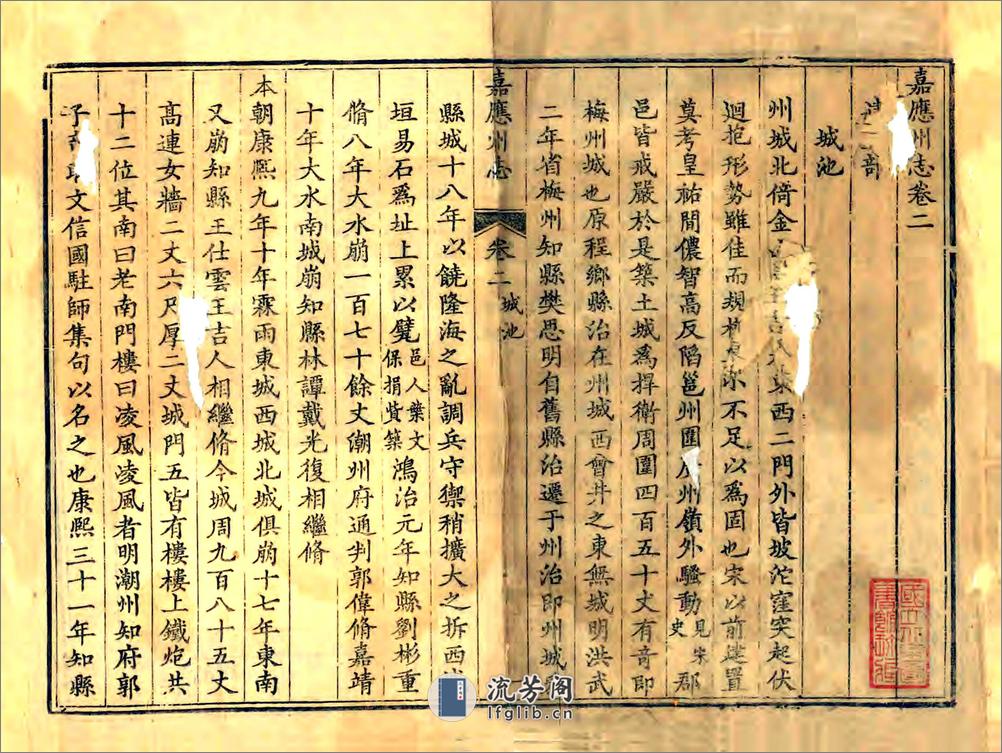 嘉應州志卷二
部
城池
州城北倚金西二門外皆坡沱窪突起伏
迴抱形勢雖佳而規不足以爲固也宋以前建置
莫考皇祐間儂智高反陷邕州圍州嶺外騷動見宋史郡
邑皆戒嚴於是築土城爲捍衛周圍四百五十丈有奇即
梅州城也原程鄉縣治在州城西會井之東無城明洪武
二年省梅州知縣樊思明自舊縣治遷于州治即州城
嘉應州志 卷二 城池
縣城十八年以饒隆海之亂調兵守禦稍擴大之拆西
垣易石爲址上累以甓邑人葉文保捐貲築鴻治元年知縣劉彬重
脩八年大水崩一百七十餘丈潮州府通判郭偉脩嘉靖
十年大水南城崩知縣林譚戴光復相繼脩
本朝康熙九年十年霖雨東城西城北城俱崩十七年東南
又崩知縣王仕雲王吉人相繼脩今城周九百八十五丈
高連女牆二丈六尺厚二丈城門五皆有樓樓上鐵炮共
十二位其南曰老南門樓曰凌風凌風者明潮州知府郭
子章取文信國駐師集句以名之也康熙三十一年知縣
流芳阁
lfglib.cn